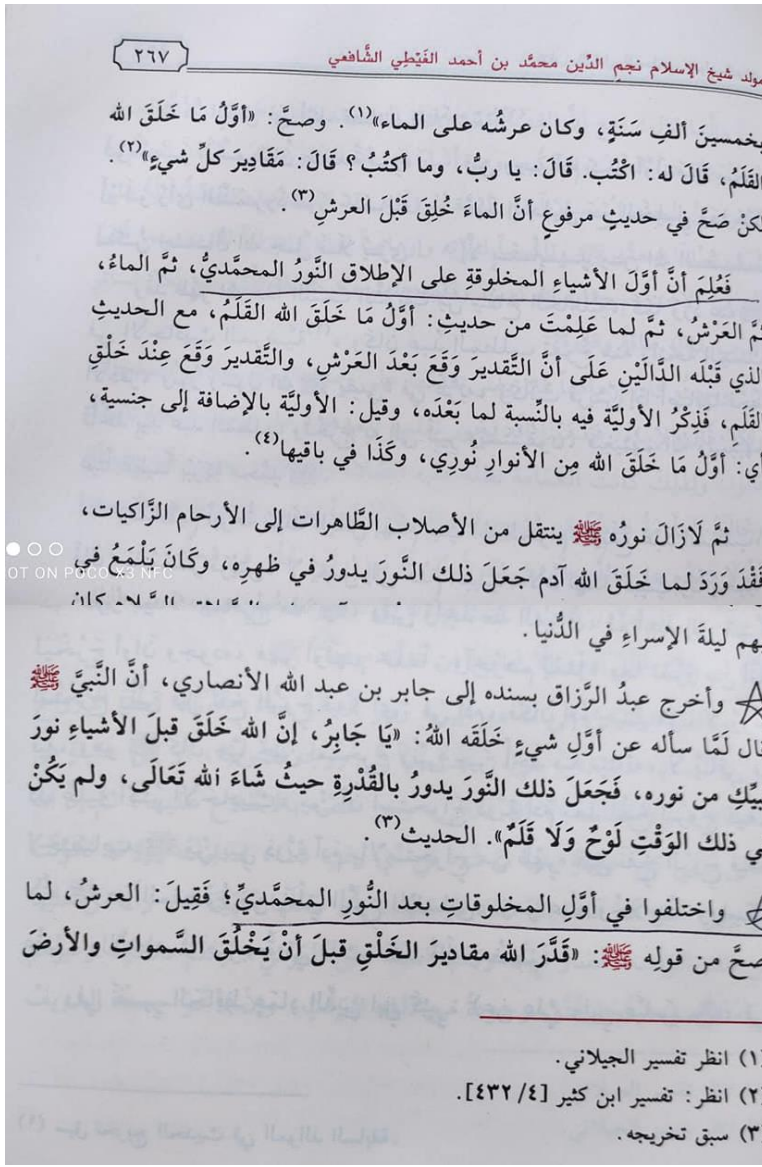 ٢٦٧
مولد شيخ الإسلام نجم الدِّين محمَّد بن أحمد الغَيْطِي الشَّافعي
بخمسينَ ألفِ سَنَةٍ، وكان عرشُه على الماء»(١). وصحَّ: «أوَّلُ مَا خَلَقَ الله
القَلَمُ، قَالَ له: اكْتُب. قَالَ: يا ربُّ، وما أكتُبُ؟ قالَ: مَقَادِيرَ كلِّ شيءٍ»(٢).
لكنْ صَحَّ في حديثٍ مرفوعٍ أنَّ الماءَ خُلِقَ قَبْلَ العرشِ(٣).
فَعُلِمَ أنَّ أوَّلَ الأشياءِ المخلوقةِ على الإطلاق النُّورُ المحمَّديُّ، ثمَّ الماءُ،
ثمَّ العَرْشُ، ثمَّ لما عَلِمْتَ من حديثِ: أوَّلُ مَا خَلَقَ الله القَلَمُ، مع الحديثِ
الذي قَبْلَه الدَّالَيْنِ عَلَى أنَّ التَّقديرَ وَقَعَ بَعْدَ العَرْشِ، والتَّقدير وَقَعَ عِنْدَ خَلْقِ
القَلَمِ، فَذِكْرُ الأوليَّة فيه بالنِّسبة لما بَعْدَه، وقيل: الأوليَّة بالإضافة إلى جنسية،
أي: أوَّلُ مَا خَلَقَ الله مِن الأنوارِ نُورِي، وكَذَا في باقيها(٤).
ثمَّ لَازَالَ نورُه ﷺ ينتقل من الأصلاب الطَّاهرات إلى الأرحام الزَّاكيات،
فَقَدْ وَرَدَ لما خَلَقَ الله آدم جَعَلَ ذلك النُّورَ يدورُ في ظهرِه، وكَانَ يَلْمَعُ في
OT ON POCO X3 NFC
بهم ليلةَ الإسراءِ في الدُّنيا.
وأخرج عبدُ الرَّزاق بسنده إلى جابر بن عبد الله الأنصاري، أنَّ النَّبيَّ ﷺ
قال لَمَّا سأله عن أوَّلِ شيءٍ خَلَقَه اللهُ: «يَا جَابِرُ، إنَّ الله خَلَقَ قبلَ الأشياءِ نورَ
نبيِّكِ من نوره، فَجَعَلَ ذلك النُّورَ يدورُ بالقُدْرةِ حيثُ شَاءَ الله تعَالَى، ولم يَكُنْ
في ذلك الوَقْتِ لَوْحٌ وَلَا قَلَمٌ». الحديث(٣).
واختلفوا في أوَّلِ المخلوقاتِ بعد النُّورِ المحمَّديِّ؛ فَقِيلَ: العرشُ، لما
صحَّ من قولِه ﷺ: «قَدَّرَ الله مقاديرَ الخَلْقِ قبلَ أنْ يَخْلُقَ السَّمواتِ والأرضَ
(١) انظر تفسير الجيلاني.
(٢) انظر: تفسير ابن كثير [٤/ ٤٣٢].
(٣) سبق تخريجه.